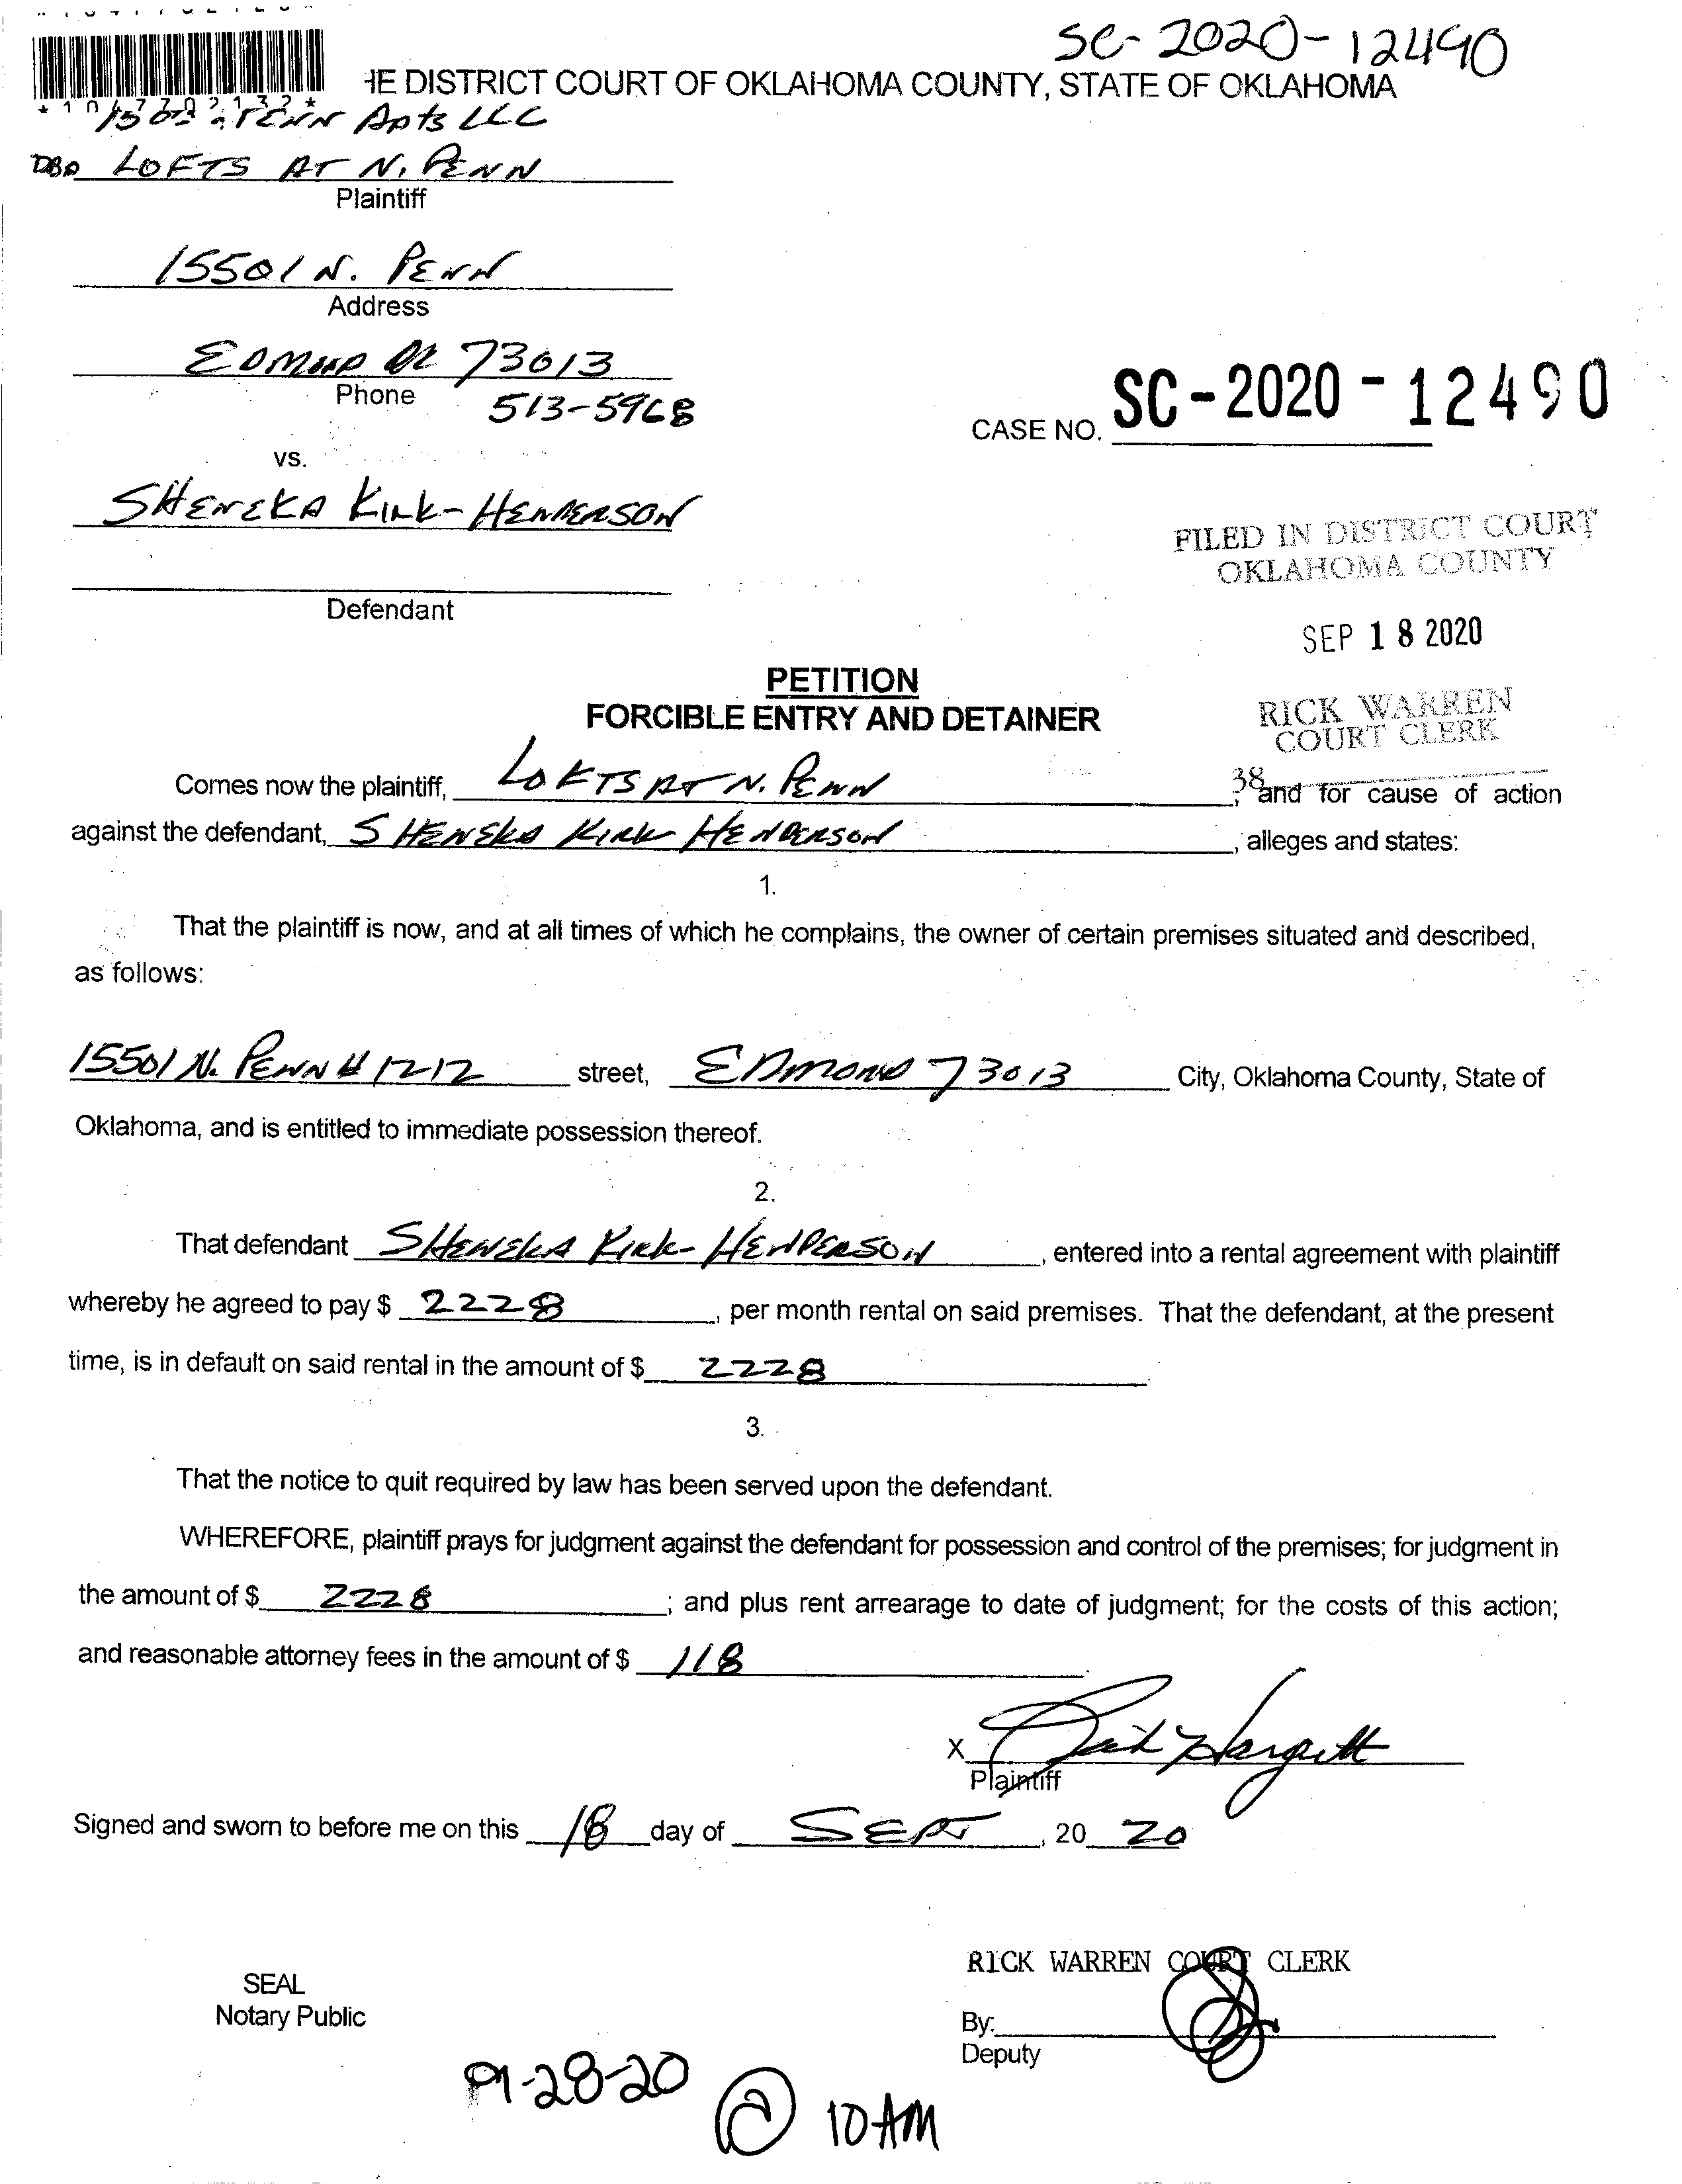 SC-2020-12490
HE DISTRICT COURT OF OKLAHOMA COUNTY, STATE OF OKLAHOMA
Apts LLC
DBA LOFTS AT N. PENN
Plaintiff
15501 N. PENN
Address
EDMOND OK 73013
Phone 513-5968
CASE NO. SC-2020-12490
vs.
SHENEKA KIRK-HENDERSON
FILED IN DISTRICT COURT
OKLAHOMA COUNTY
Defendant
SEP 18 2020
PETITION
FORCIBLE ENTRY AND DETAINER
RICK WARREN
COURT CLERK
38
Comes now the plaintiff, LOFTS AT N. PENN, and for cause of action
against the defendant, SHENEKA KIRK-HENDERSON, alleges and states:
1.
That the plaintiff is now, and at all times of which he complains, the owner of certain premises situated and described,
as follows:
15501 N. PENN # 1212 street, EDMOND 73013 City, Oklahoma County, State of
Oklahoma, and is entitled to immediate possession thereof.
2.
That defendant SHENEKA KIRK-HENDERSON, entered into a rental agreement with plaintiff
whereby he agreed to pay $ 2228, per month rental on said premises. That the defendant, at the present
time, is in default on said rental in the amount of $ 2228.
3.
That the notice to quit required by law has been served upon the defendant.
WHEREFORE, plaintiff prays for judgment against the defendant for possession and control of the premises; for judgment in
the amount of $ 2228; and plus rent arrearage to date of judgment; for the costs of this action;
and reasonable attorney fees in the amount of $ 118.
X
Plaintiff
Signed and sworn to before me on this 18 day of SEPT, 20 20
RICK WARREN COURT CLERK
SEAL
Notary Public
By:
Deputy
9-28-20 @ 10 AM